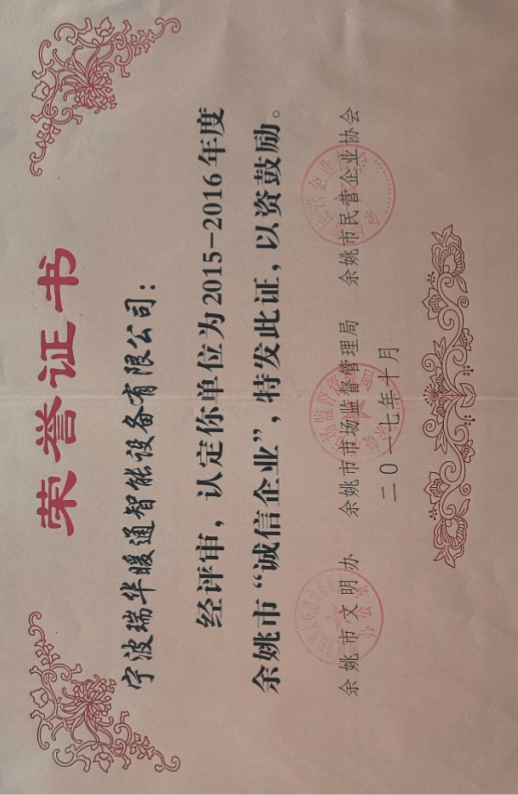 荣誉证书
宁波瑞华暖通智能设备有限公司：
经评审，认定你单位为2015-2016年度
余姚市“诚信企业”，特发此证，以资鼓励。
余姚市文明办 余姚市市场监督管理局 余姚市民营企业协会
二〇一七年十月